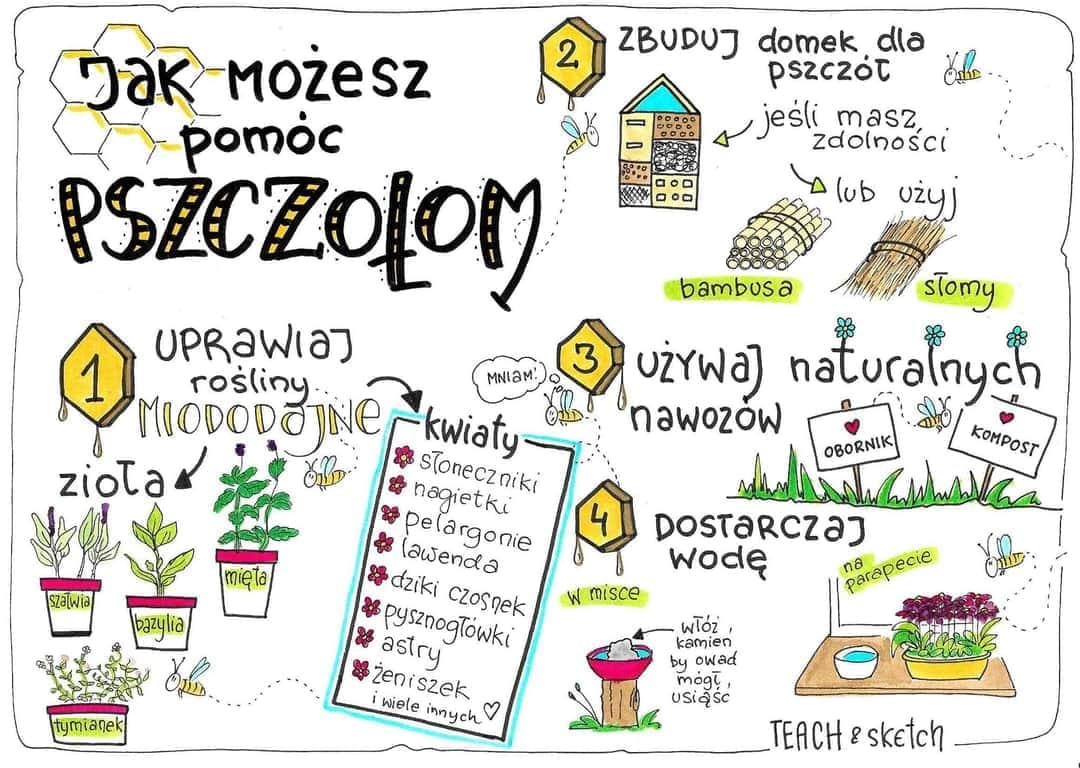 JAK MOŻESZ
pomóc
PSZCZOŁOM
1
UPRAWIAJ
rośliny
MIODODAJNE
zioła
szałwia
bazylia
mięta
tymianek
kwiaty
słoneczniki
nagietki
pelargonie
lawenda
dziki czosnek
pysznogłówki
astry
żeniszek
i wiele innych
2
ZBUDUJ domek dla
pszczół
jeśli masz
zdolności
lub użyj
bambusa
słomy
3
MNIAM!
UŻYWAJ naturalnych
nawozów
OBORNIK
KOMPOST
4
DOSTARCZAJ
wodę
w misce
włóż
kamień
by owad
mógł
usiąść
na
parapecie
TEACH & sketch